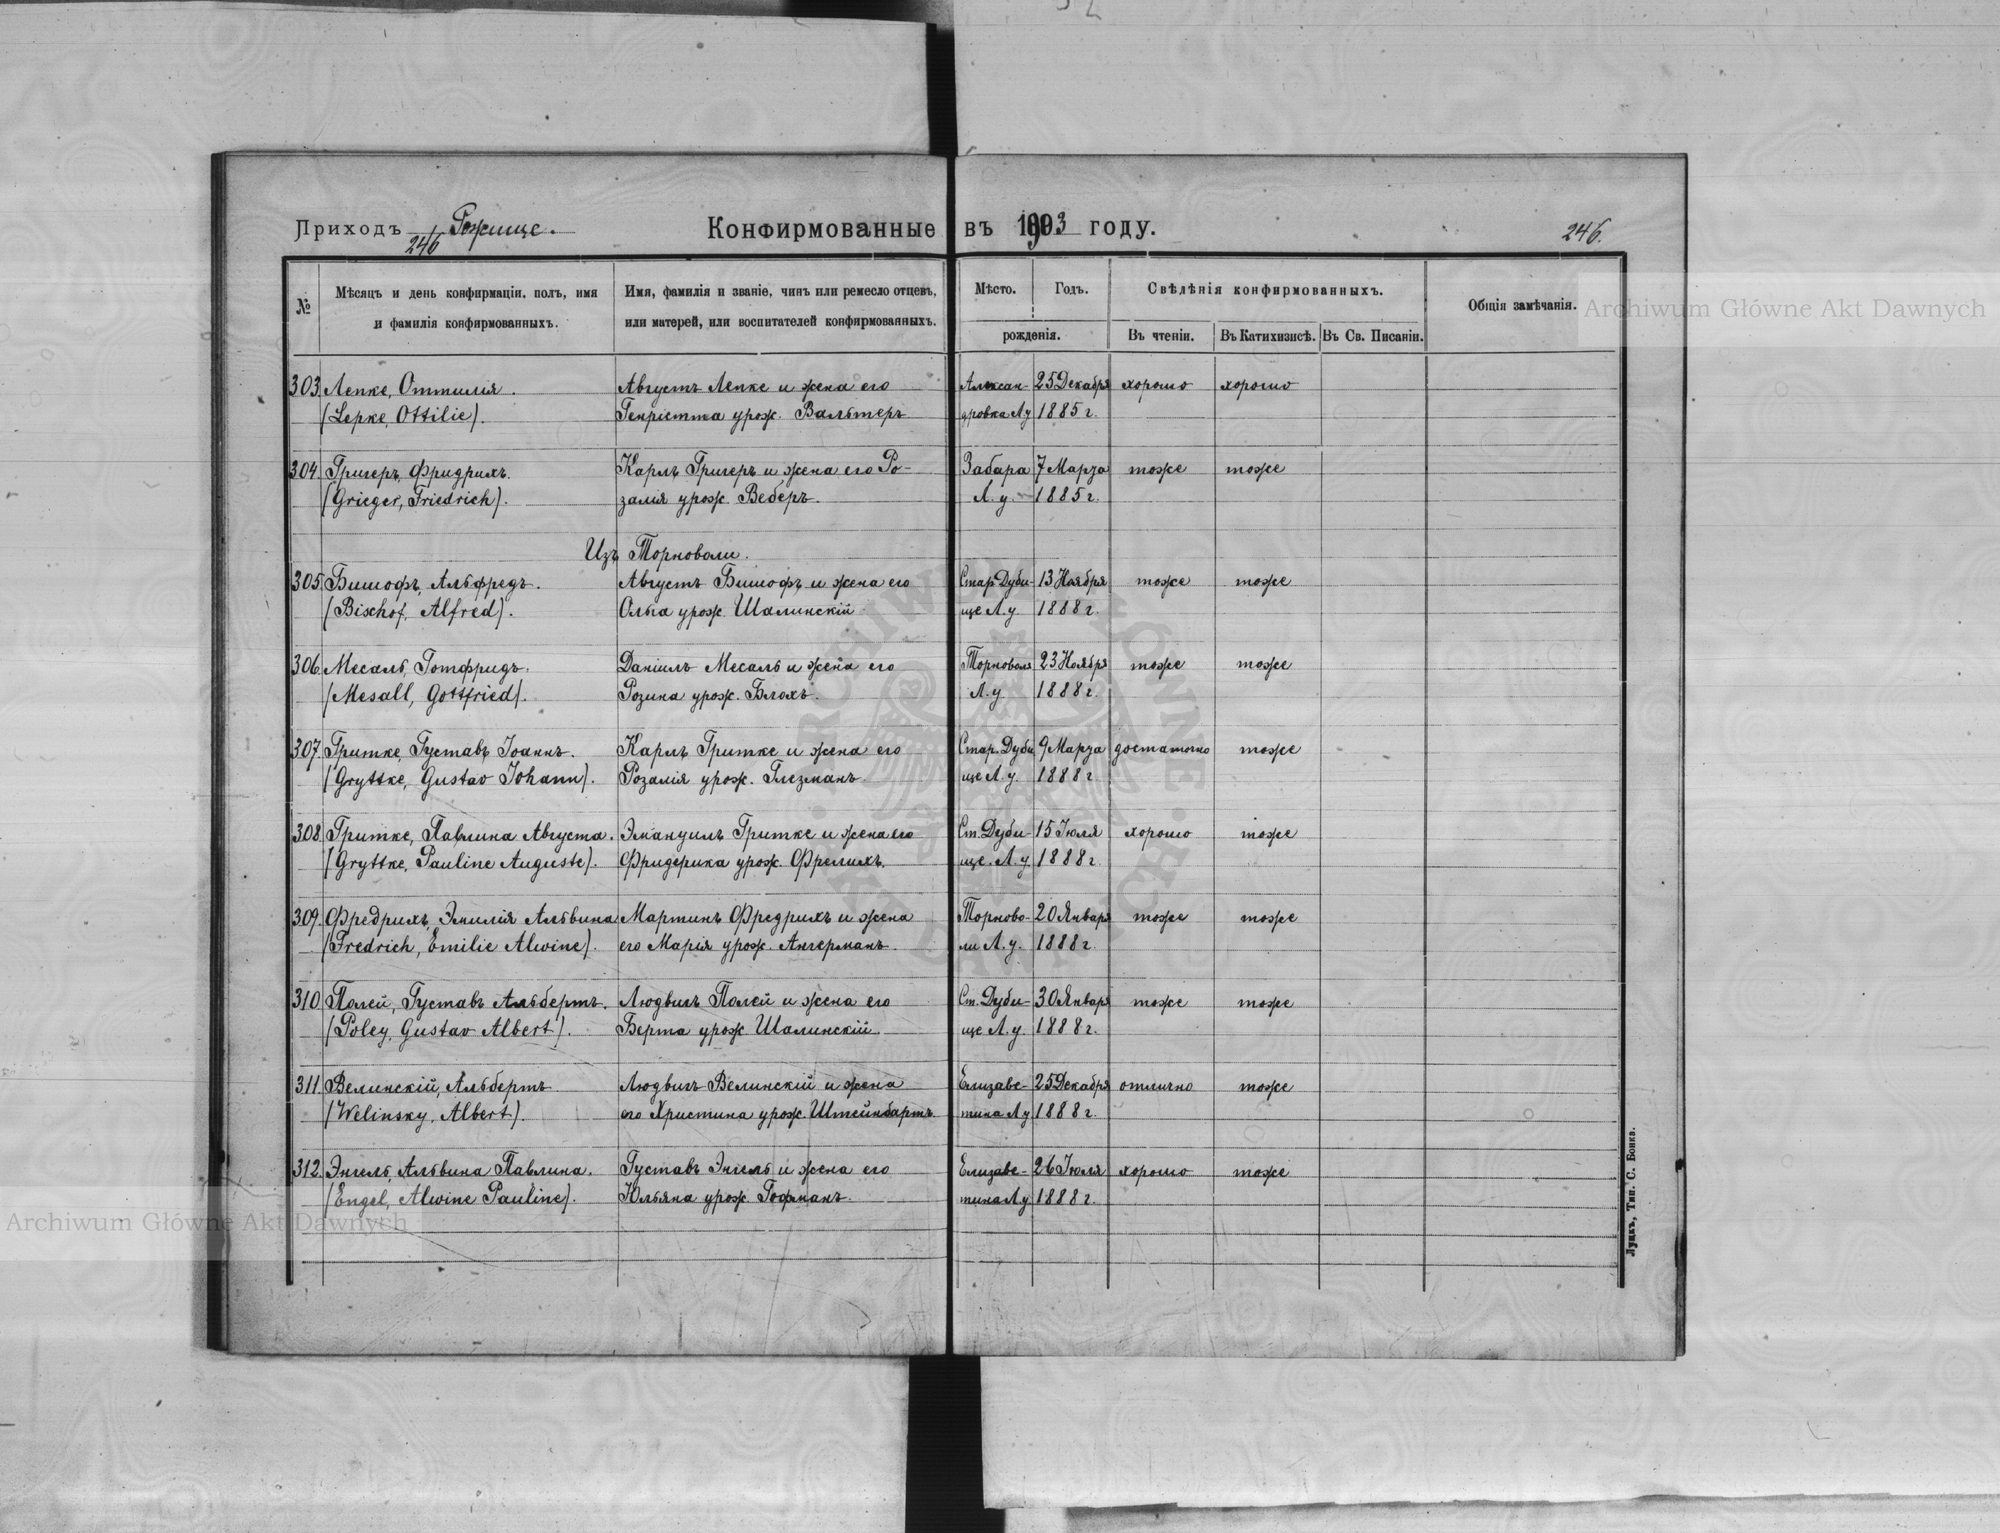 Приходъ Рожище. Конфирмованные въ 1903 году.
246 246.
№ Мѣсяцъ и день конфирмаціи, полъ, имя и фамилія конфирмованныхъ. Имя, фамилія и званіе, чинъ или ремесло отцевъ, или матерей, или воспитателей конфирмованныхъ. Мѣсто. Годъ. рожденія. Свѣдѣнія конфирмованныхъ. Въ чтеніи. Въ Катихизисѣ. Въ Св. Писаніи. Общія замѣчанія.
303. Лепке, Оттилія. Августъ Лепке и жена его Алексан- 25 Декабря хорошо хорошо
(Lepke, Ottilie). Генріетта урож. Вальтеръ дровка Л.у 1885 г.
304. Григеръ, Фридрихъ. Карлъ Григеръ и жена его Ро- Забара 7 Марта тоже тоже
(Grieger, Friedrich). залія урож. Веберъ. Л. у. 1885 г.
Изъ Торноволи.
305. Бишофъ, Альфредъ. Августъ Бишофъ и жена его Стар. Дуби- 13 Ноября тоже тоже
(Bischof, Alfred). Ольга урож. Шалинскій ще Л.у. 1888 г.
306. Месаль, Готфридъ. Даніилъ Месаль и жена его Торноволя 23 Ноября тоже тоже
(Mesall, Gottfried). Розина урож. Блохъ. Л. у. 1888 г.
307. Гритке, Густавъ Іоаннъ. Карлъ Гритке и жена его Стар. Дуби 9 Марта достаточно тоже
(Gryttke, Gustav Johann). Розалія урож. Глезманъ ще Л.у. 1888 г.
308. Гритке, Павлина Августа. Эмануилъ Гритке и жена его Ст. Дуби- 15 Іюля хорошо тоже
(Gryttke, Pauline Auguste). Фридерика урож. Фрелихъ. ще. Л. у 1888 г.
309. Фредрихъ, Эмилія Альвина Мартинъ Фредрихъ и жена Торново- 20 Января тоже тоже
(Fredrich, Emilie Alwine). его Марія урож. Ангерманъ. ли Л. у. 1888 г.
310. Полей, Густавъ Альбертъ. Людвигъ Полей и жена его Ст. Дуби- 30 Января тоже тоже
(Poley, Gustav Albert). Берта урож. Шалинскій ще Л. у. 1888 г.
311. Велинскій, Альбертъ Людвигъ Велинскій и жена Елизаве- 25 Декабря отлично тоже
(Welinsky, Albert). его Христина урож. Штейнбартъ тина Л у 1888 г.
312. Энгель, Альвина Павлина. Густавъ Энгель и жена его Елизаве- 26 Іюля хорошо тоже
(Engel, Alwine Pauline). Юльяна урож. Гофманъ. тина Л у 1888 г.
Луцкъ, Тип. С. Бонка.
Archiwum Główne Akt Dawnych
Archiwum Główne Akt Dawnych